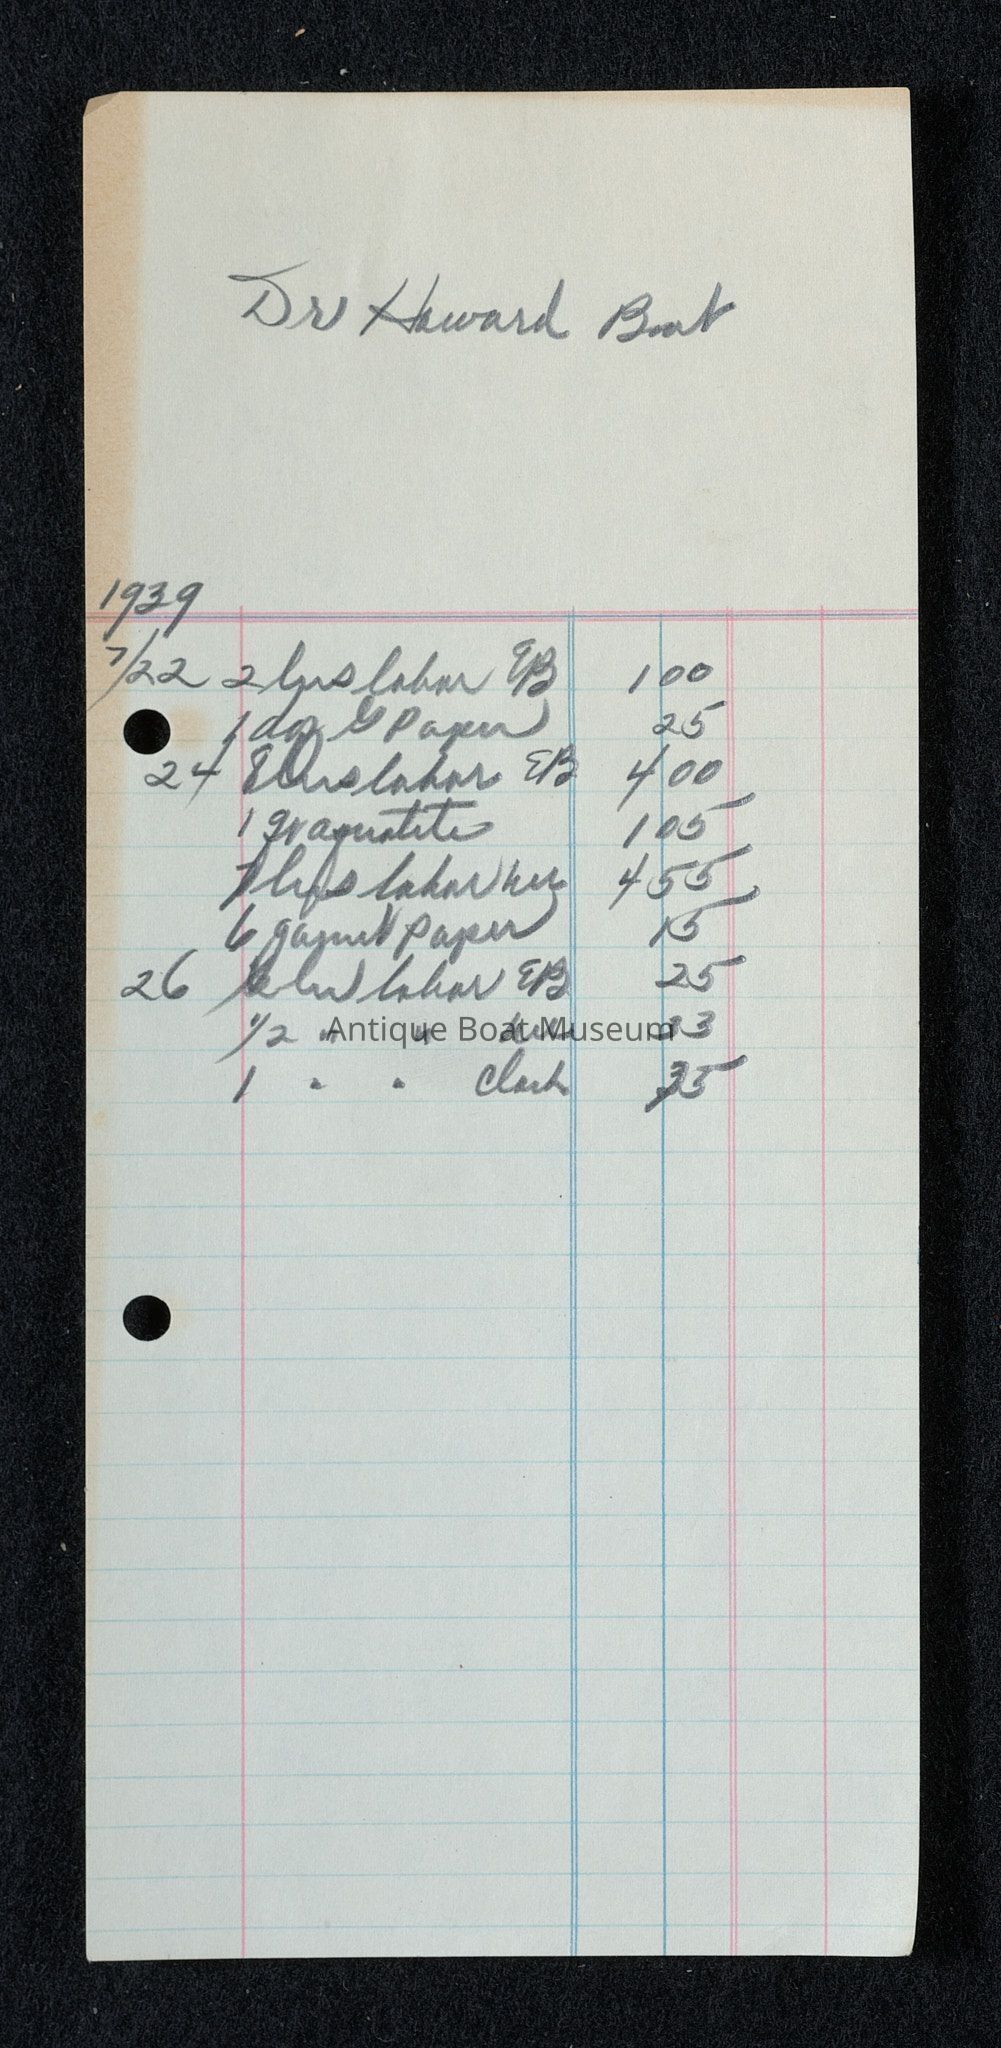 Dr Howard Boat
1939
7/22 2 hrs labor EB 1 00
1 doz G Paper 25
24 8 hrs labor EB 4 00
1 gr aquatite 1 05
7 hrs labor 4 55
6 garnet paper 15
26 hr labor EB 25
1/2 " " 33
1 " " Clark 35
Antique Boat Museum